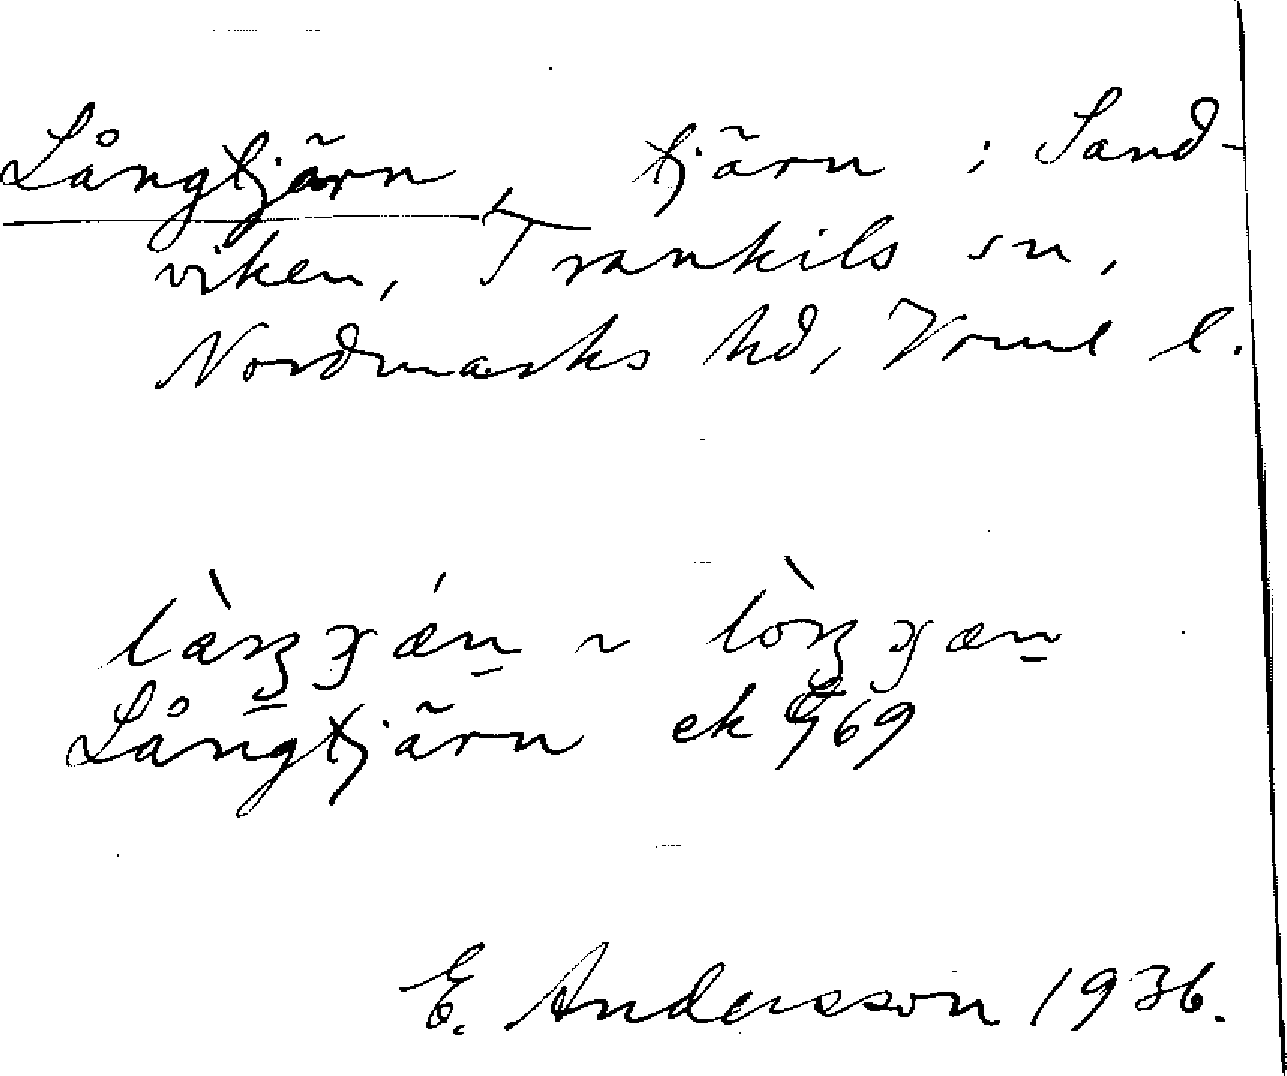 Långtjärn, tjärn i Sand-
viken, Trankils sn,
Nordmarks hd, Vrml l.
Långtjärn ek 969
E. Andersson 1936.